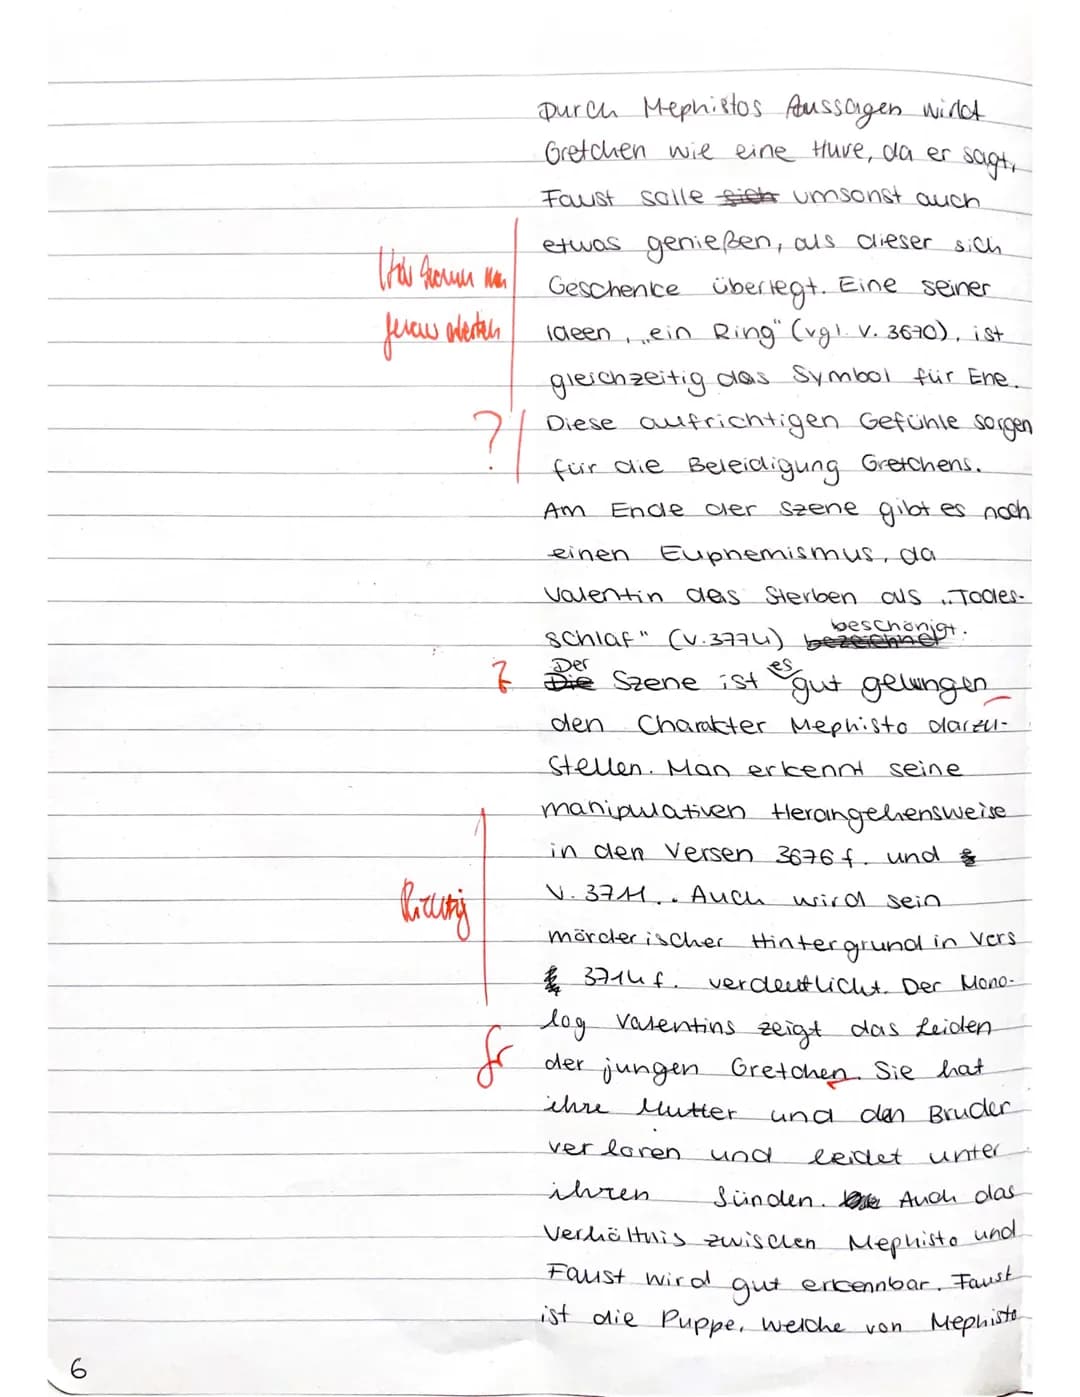 Durch Mephistos Aussagen wirkt
Gretchen wie eine Hure, da er sagt,
Faust solle sich umsonst auch
etwas genießen, als dieser sich
Geschenke überlegt. Eine seiner
Ideen, „ein Ring" (vgl. V. 3670), ist
gleichzeitig das Symbol für Ehe.
?
Diese aufrichtigen Gefühle sorgen
für die Beleidigung Gretchens.
Am Ende der Szene gibt es noch
einen Euphemismus, da
Valentin das Sterben als „Todes-
beschönigt.
schlaf" (V. 3774) bezeichnet
Z
Der es
Die Szene ist gut gelungen
den Charakter Mephisto darzu-
stellen. Man erkennt seine
manipulativen Herangehensweise
in den Versen 3676 f. und
V. 3711. Auch wird sein
Richtig
mörderischer Hintergrund in Vers
3714 f. verdeutlicht. Der Mono-
log Valentins zeigt das Leiden
Gr
der jungen Gretchen. Sie hat
ihre Mutter und den Bruder
verloren und leidet unter
ihren Sünden. Auch das
Verhältnis zwischen Mephisto und
Faust wird gut erkennbar. Faust
ist die Puppe, welche von Mephisto
6